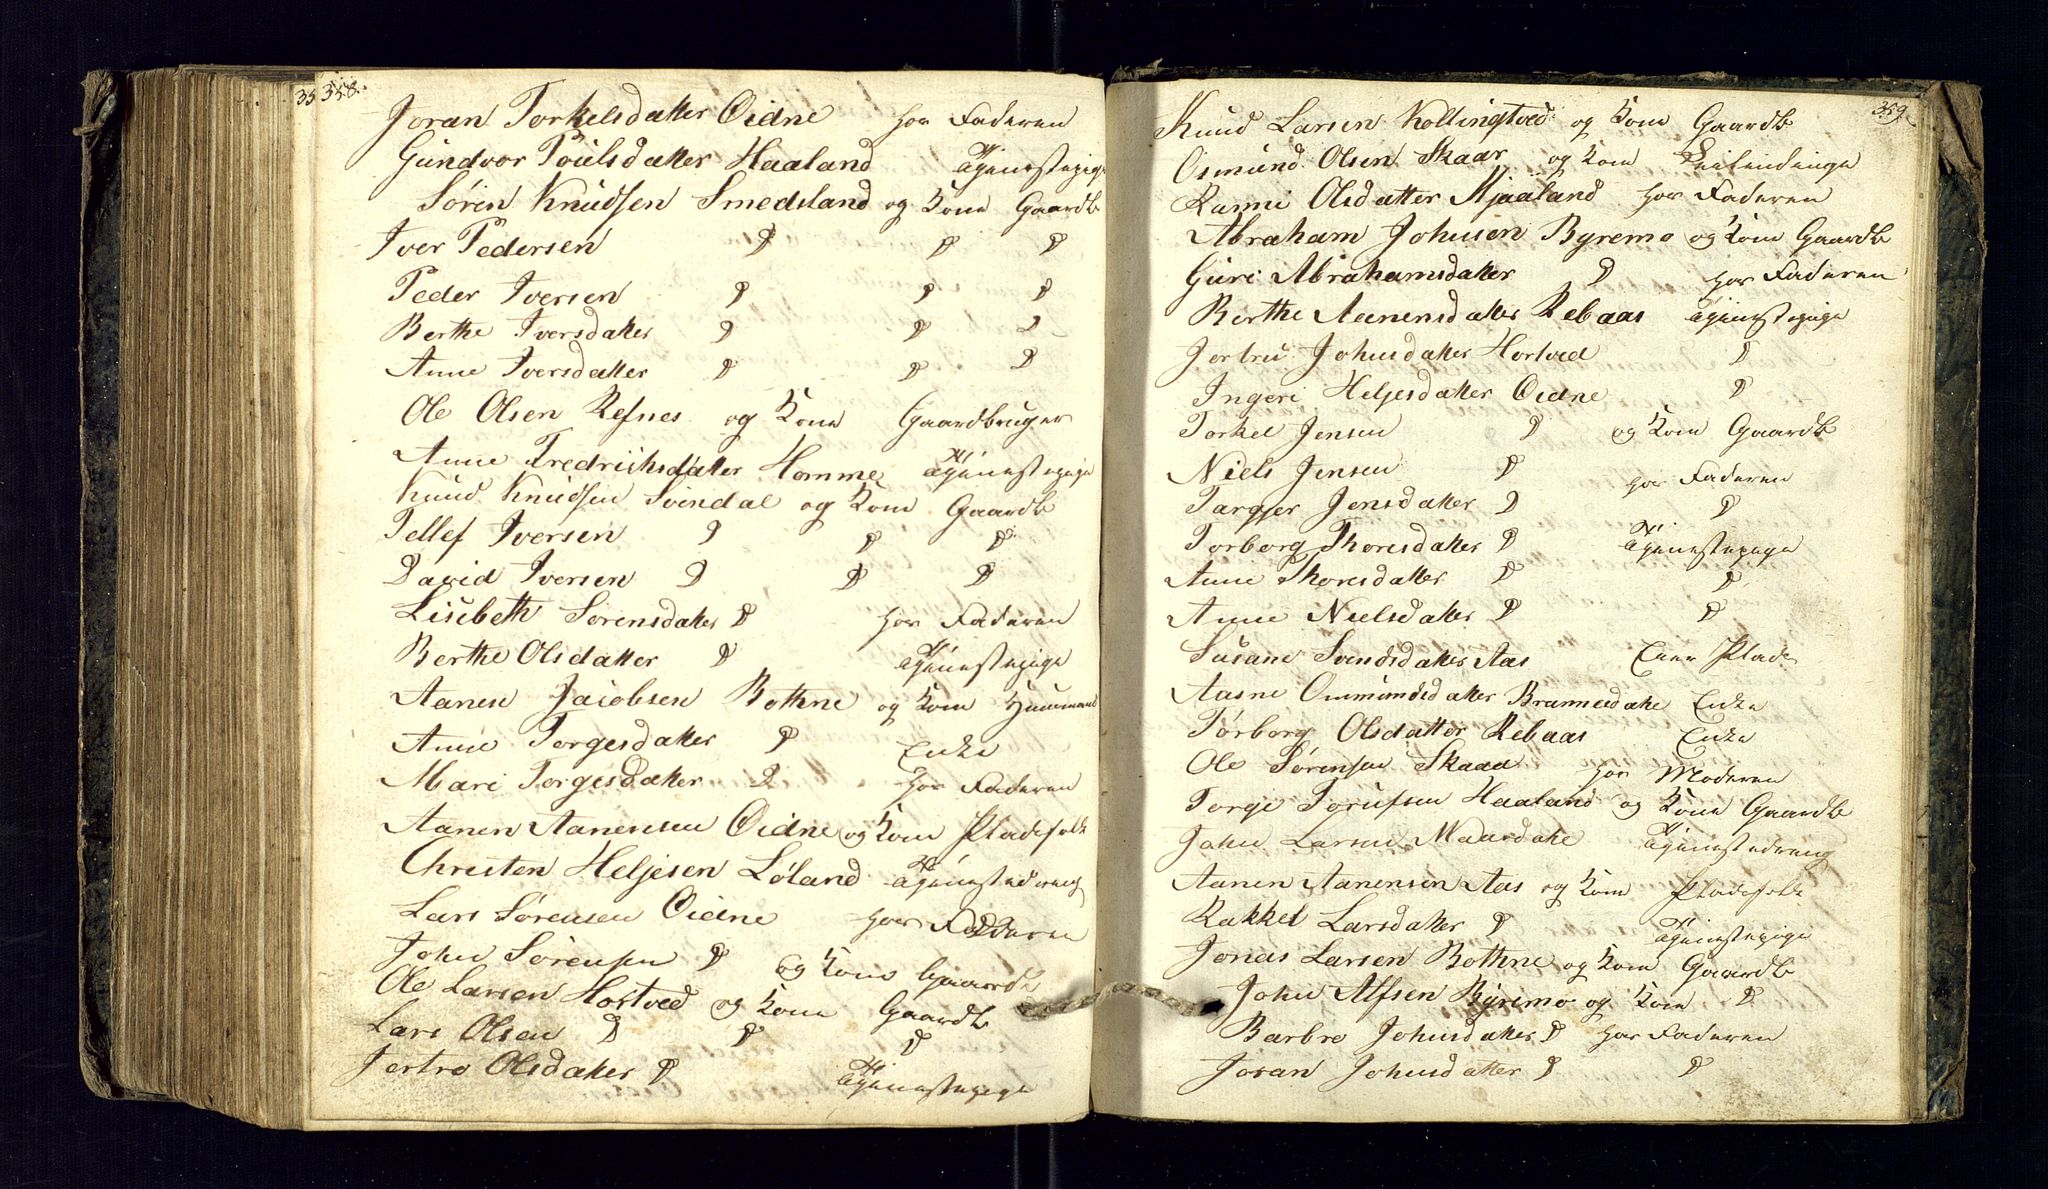 358.
Joran Torkelsdatter Oidne hos Faderen
Gundvor Poulsdatter Haaland Tjenestepige
Sørin Knudsen Smedsland og Kone Gaardb
Iver Pedersen D D D
Peder Iversen D D D
Berthe Iversdatter D D D
Anne Iversdatter D D D
Ole Olsen Refnes og Kone Gaardbruger
Anne Fredrichsdatter Homme Tjenestepige
Knud Knudsen Svindal og Kone Gaardb
Tellef Iversen D D D
David Iversen D D D
Lisebeth Sørensdatter D hos Faderen
Berthe Olsdatter D Tjenestepige
Aanen Jacobsen Bothne og Kone Huusmand
Anne Torgesdatter D Enke
Mari Torgesdatter D hos Faderen
Aanen Aanensen Oidne og Kone Pladsfolk
Christen Heljesen Løland Tjenestedreng
Lars Sørensen Oidne hos Faderen
John Sørensen D og Kone Gaardb
Ole Larsen Hortved og Kone Gaardb
Lars Olsen D D D
Jertro Olsdatter D Tjenestepige
359.
Knud Larsen Kollingtved og Kone Gaardb
Osmund Olsen Skaar og Kone Leilendinge
Ranni Olsdatter Mjaaland hos Faderen
Abraham Johnsen Byremo og Kone Gaardb
Guri Abrahamsdatter D hos Faderen
Berthe Aanensdatter Rebaas Tjenestepige
Jortru Johnsdatter Hortved D
Ingeri Heljesdatter Oidne D
Torkel Jensen D og Kone Gaardb
Niels Jensen D hos Faderen
Targjer Jensdatter D D
Torborg Thoresdatter D Tjenestepige
Anne Thoresdatter D D
Anne Nielsdatter D D
Susane Svendsdatter Aas Plads
Aasne Ommundsdatter Brannesdahe Enke
Tørborg Olsdatter Rebaas Enke
Ole Sørensen Skaar hos Moderen
Torge Torufsen Haaland og Kone Gaardb
John Larsen Maardahe Tjenestedreng
Aanen Aanensen Aas og Kone Pladsfolk
Rakkel Larsdatter D Tjenestepige
Jonas Larsen Bothne og Kone Gaardb
John Alfsen Byremo og Kone D
Barbro Johnsdatter D hos Faderen
Joran Johnsdatter D D